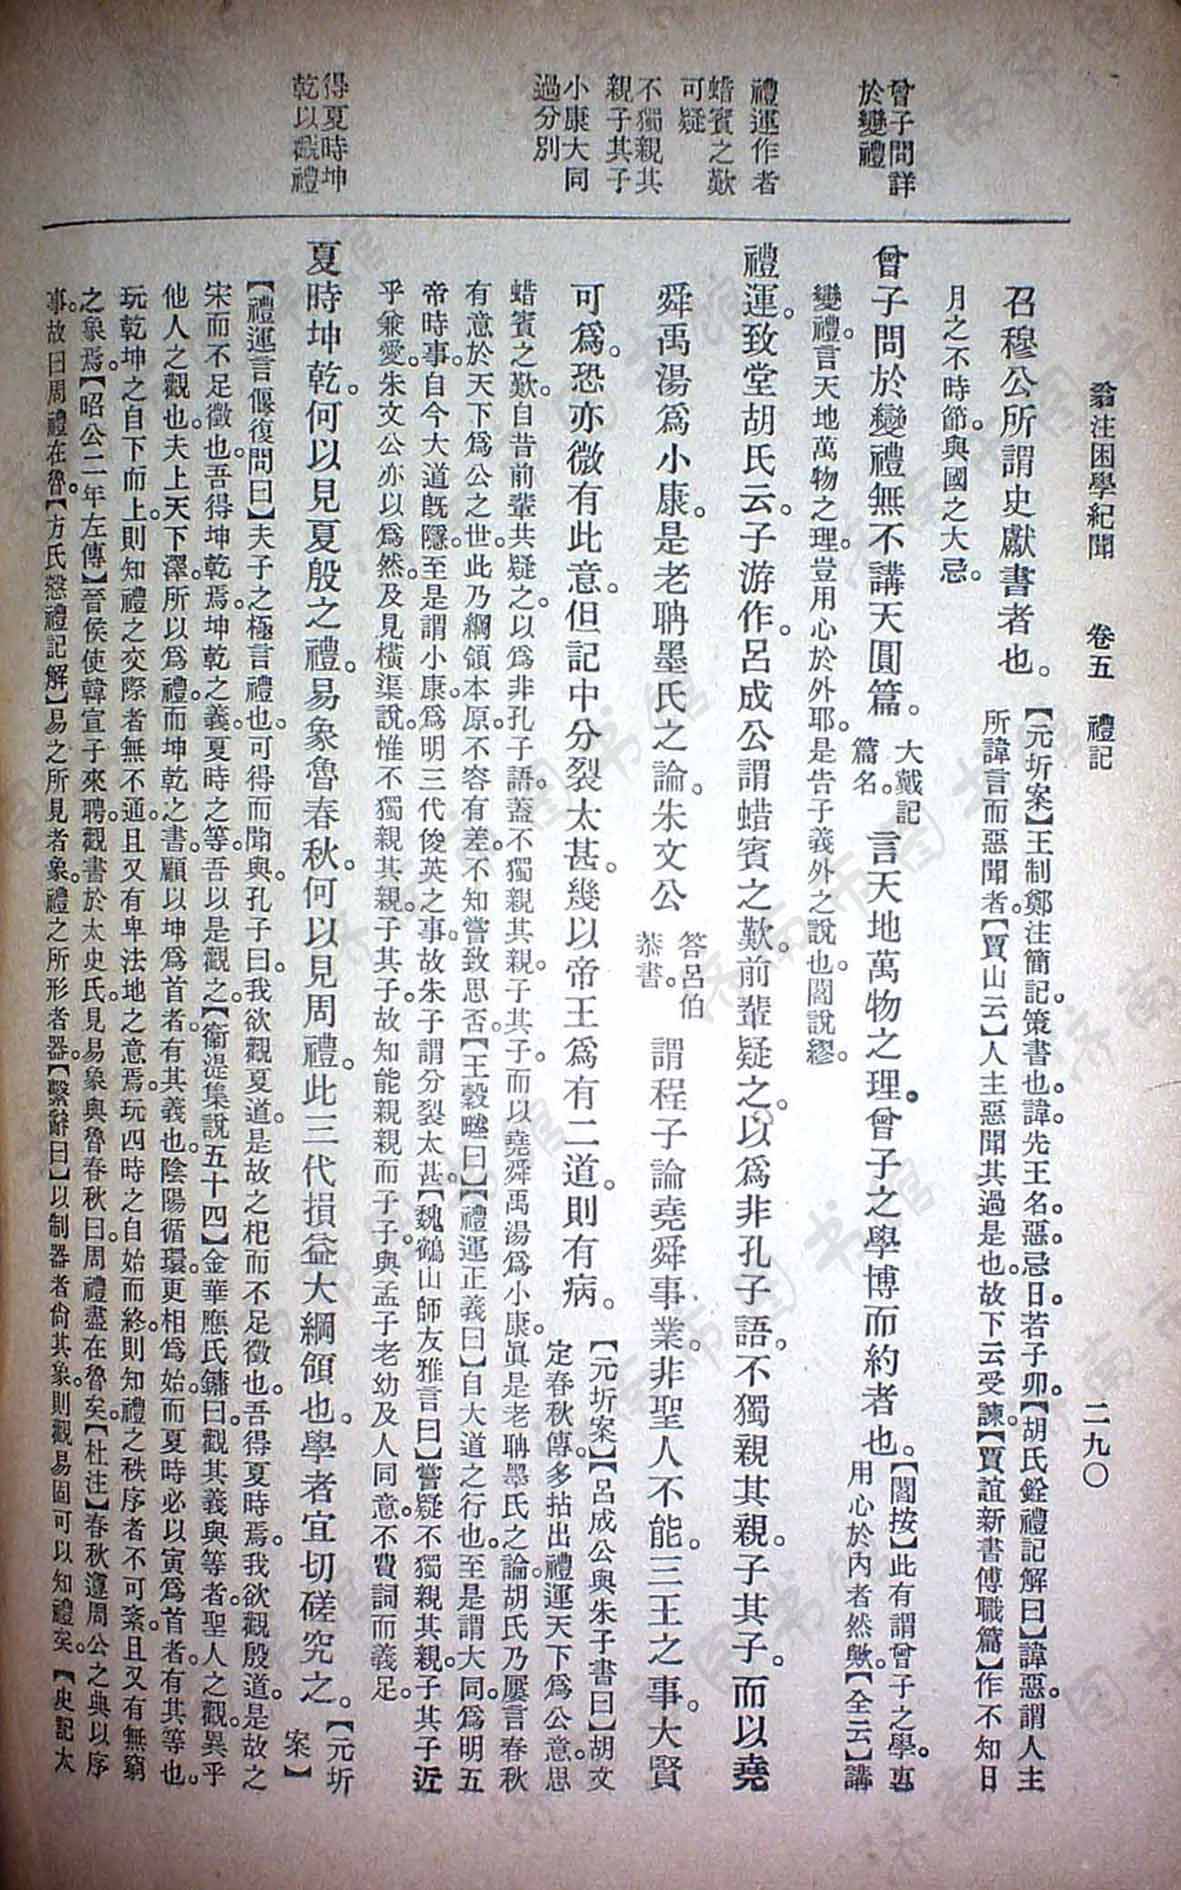 翁注困學紀聞　卷五　禮記　二九〇
曾子問詳
於變禮
禮運作者
蜡賓之歎
可疑
不獨親其
親子其子
小康大同
過分別
得夏時坤
乾以觀禮
召穆公所謂史獻書者也。
【元圻案】王制鄭注簡記策書也。諱先王名。惡忌日。若子卯。【胡氏銓禮記解曰】諱惡。謂人主
所諱言而惡聞者。【賈山云】人主惡聞其過是也。故下云受諫。【賈誼新書傅職篇】作不知日
月之不時節。與國之大忌。
曾子問於變禮無不講。天圓篇。
大戴記
篇名。
言天地萬物之理。曾子之學博而約者也。
【閻按】此有謂曾子之學。專
用心於內者然歟。【全云】講
變禮。言天地萬物之理。豈用心於外耶。是告子義外之說也。閻說繆。
禮運。致堂胡氏云。子游作。呂成公謂蜡賓之歎。前輩疑之。以爲非孔子語。不獨親其親。子其子。而以堯
舜禹湯爲小康。是老聃墨氏之論。朱文公
答呂伯
恭書。
謂程子論堯舜事業。非聖人不能。三王之事。大賢
可爲。恐亦微有此意。但記中分裂太甚。幾以帝王爲有二道。則有病。
【元圻案】【呂成公與朱子書曰】胡文
定春秋傳。多拈出禮運天下爲公意思
蜡賓之歎。自昔前輩共疑之。以爲非孔子語。蓋不獨親其親。子其子。而以堯舜禹湯爲小康。眞是老聃墨氏之論。胡氏乃屢言春秋
有意於天下爲公之世。此乃綱領本原。不容有差。不知嘗致思否。【王縠塍曰】【禮運正義曰】自大道之行也。至是謂大同。爲明五
帝時事。自今大道旣隱。至是謂小康。爲明三代俊英之事。故朱子謂分裂太甚。【魏鶴山師友雅言曰】嘗疑不獨親其親。子其子近
乎兼愛。朱文公亦以爲然。及見橫渠說。惟不獨親其親。子其子。故知能親親而子子。與孟子老幼及人同意。不費詞而義足。
夏時坤乾。何以見夏殷之禮。易象魯春秋。何以見周禮。此三代損益大綱領也。學者宜切磋究之。
【元圻
案】
【禮運言偃復問曰】夫子之極言禮也。可得而聞與。孔子曰。我欲觀夏道。是故之杞而不足徵也。吾得夏時焉。我欲觀殷道。是故之
宋而不足徵也。吾得坤乾焉。坤乾之義。夏時之等。吾以是觀之。【衞湜集說五十四】金華應氏鏞曰。觀其義與等者。聖人之觀。異乎
他人之觀也。夫上天下澤。所以爲禮。而坤乾之書。顧以坤爲首者。有其義也。陰陽循環。更相爲始。而夏時必以寅爲首者。有其等也。
玩乾坤之自下而上。則知禮之交際者無不通。且又有卑法地之意焉。玩四時之自始而終。則知禮之秩序者不可紊。且又有無窮
之象焉。【昭公二年左傳】晉侯使韓宣子來聘。觀書於太史氏。見易象與魯春秋。曰。周禮盡在魯矣。【杜注】春秋遵周公之典以序
事。故曰周禮在魯。【方氏慤禮記解】易之所見者象。禮之所形者器。【繫辭曰】以制器者尙其象。則觀易固可以知禮矣。【史記太